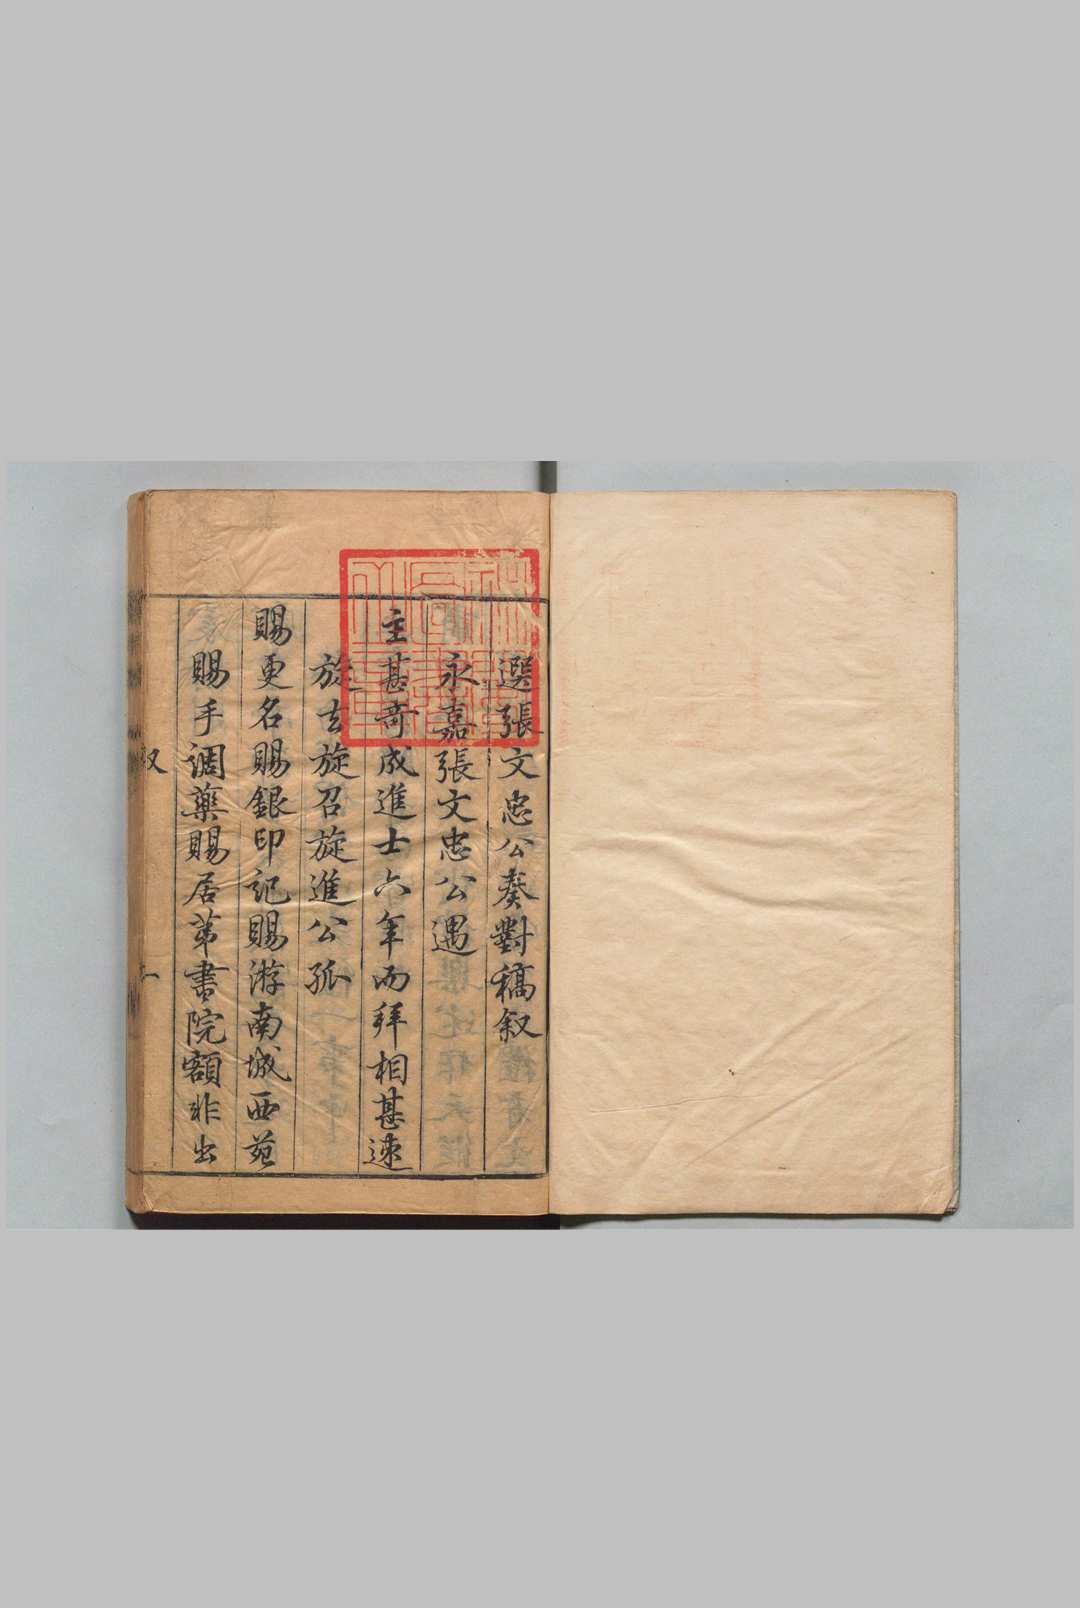 選張文忠公奏對稿叙
永嘉張文忠公遇
主甚奇成進士六年而拜相甚速
旋去旋召旋進公孤
賜更名賜銀印記賜游南城西苑
賜手調藥賜居第書院額非出
叙
一